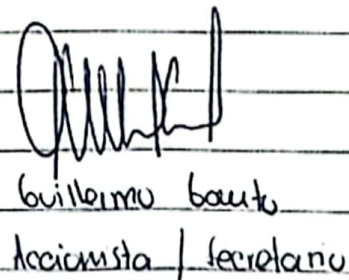 Guillermo Gauto
Accionista / Secretario